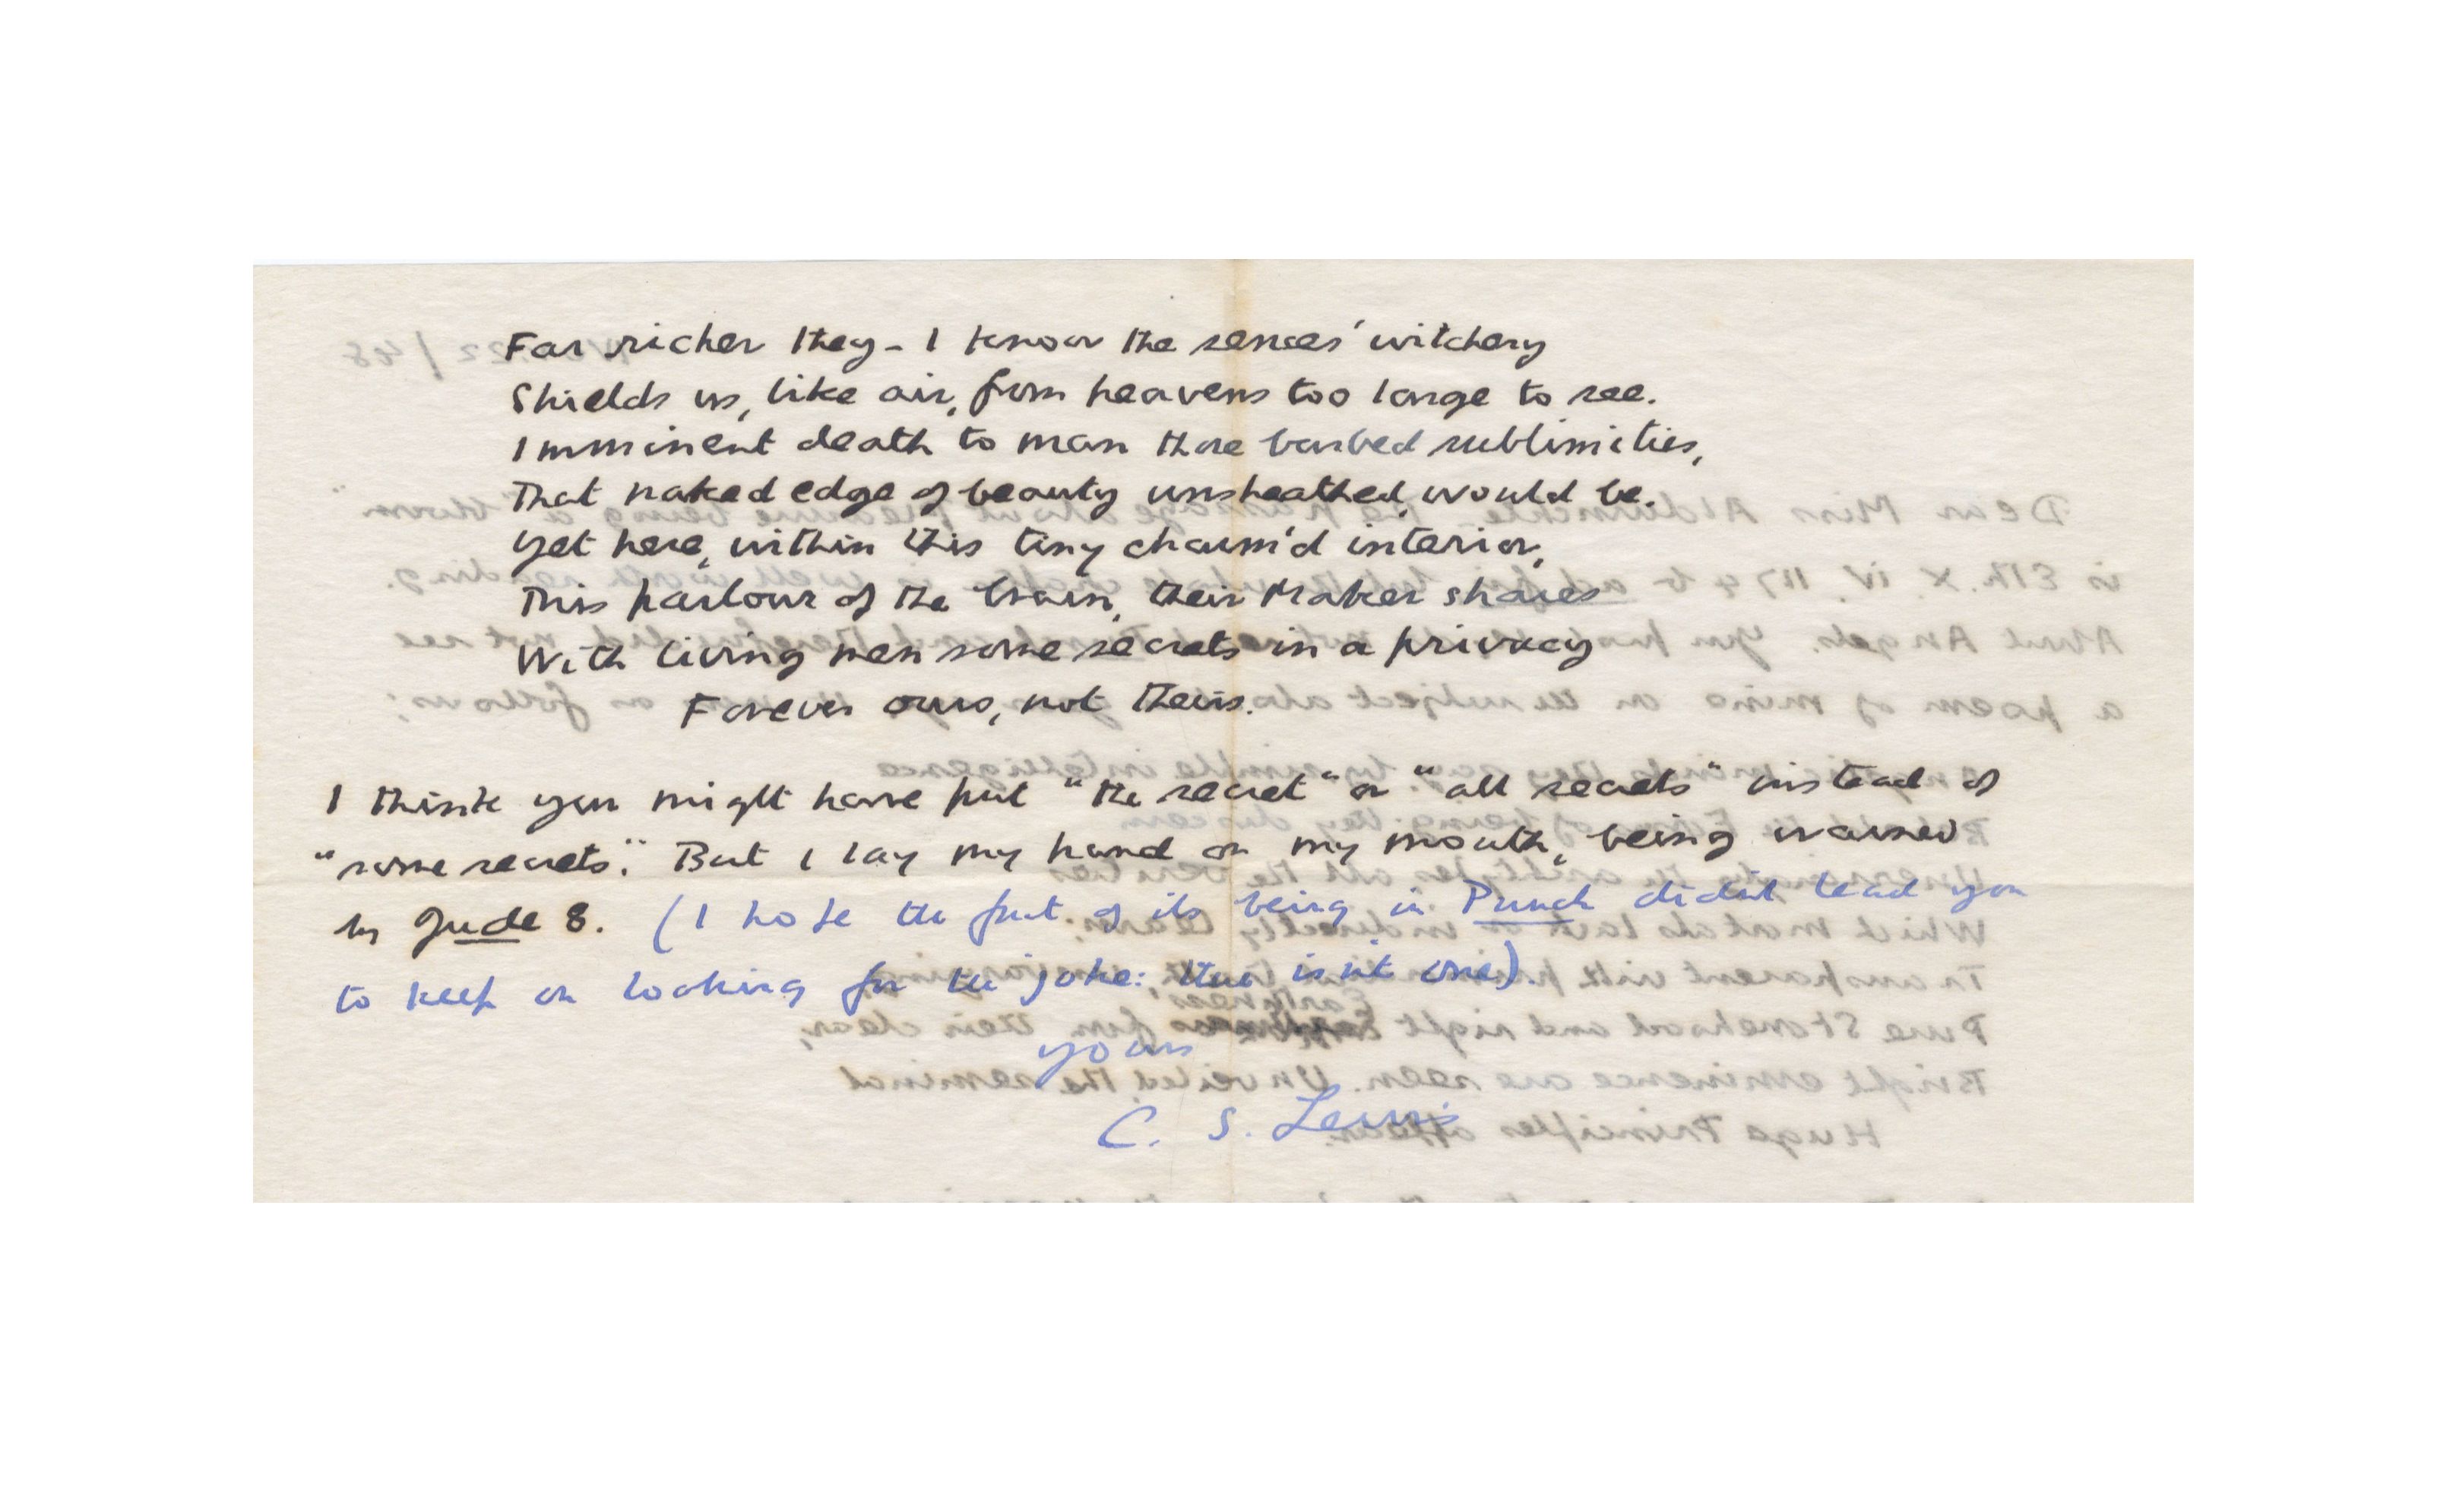 Far richer they – I know the senses' witchery
Shields us, like air, from heavens too large to see.
Imminent death to man those barbed sublimities,
That naked edge of beauty unsheathed, would be.
Yet here, within this tiny charm'd interior,
This parlour of the brain, their Maker shares
With living men some secrets in a privacy
Forever ours, not theirs.
I think you might have put "the secret" or "all secrets" instead of
"some secrets". But I lay my hand on my mouth, being warned
by Jude 8. (I hope the fact of its being in Punch didn't lead you
to keep on looking for the joke: there isn't one).
yours
C. S. Lewis